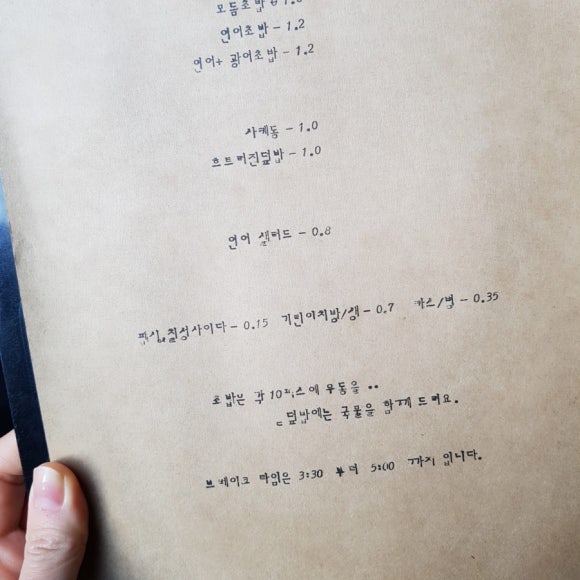 모듬초밥
연어초밥 - 1.2
연어+ 광어초밥 - 1.2
사케동 - 1.0
흐트러진덮밥 - 1.0
연어 샐러드 - 0.8
펩시,칠성사이다 - 0.15 기린이치방/생 - 0.7 카스/병 - 0.35
초밥은 각 10피스에 우동을 ..
덮밥에는 국물을 함께 드려요.
브레이크 타임은 3:30 부터 5:00 까지 입니다.